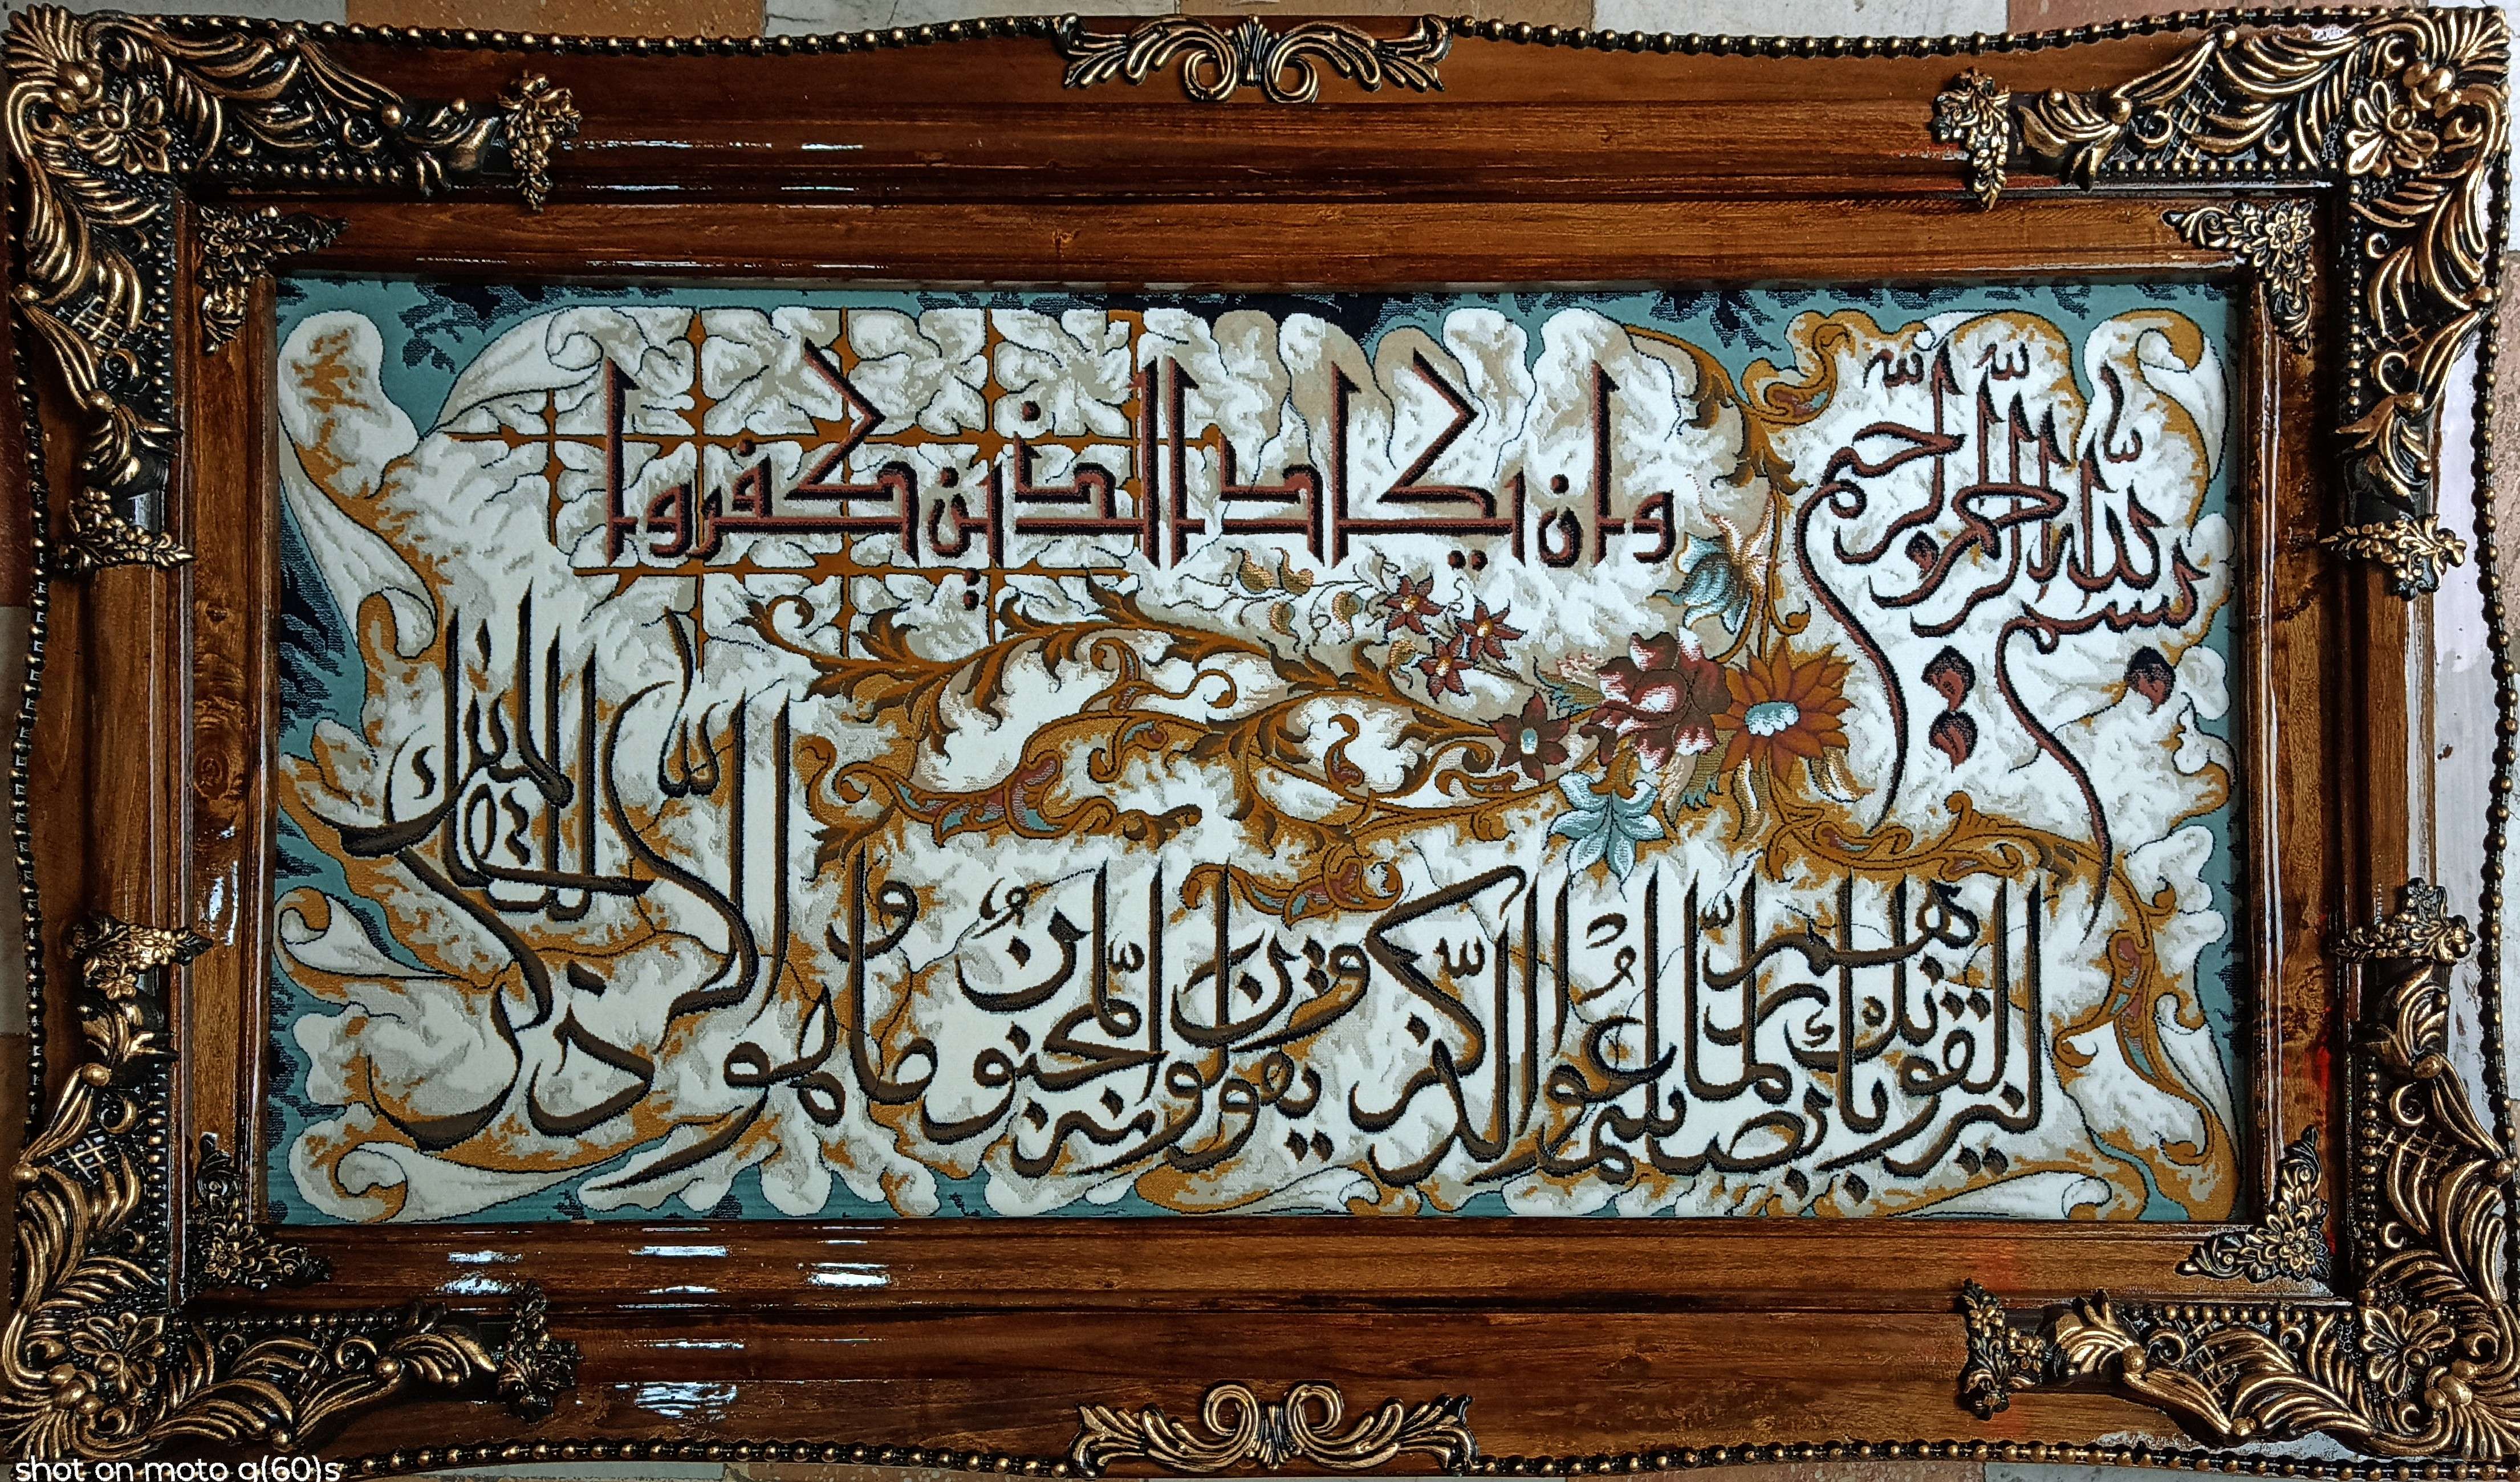 بسم الله الرحمن الرحیم
وان یکاد الذین کفروا
لیزلقونک بابصارهم لما سمعوا الذکر و یقولون انه لمجنون و ما هو الا ذکر للعالمین
shot on moto g(60)s